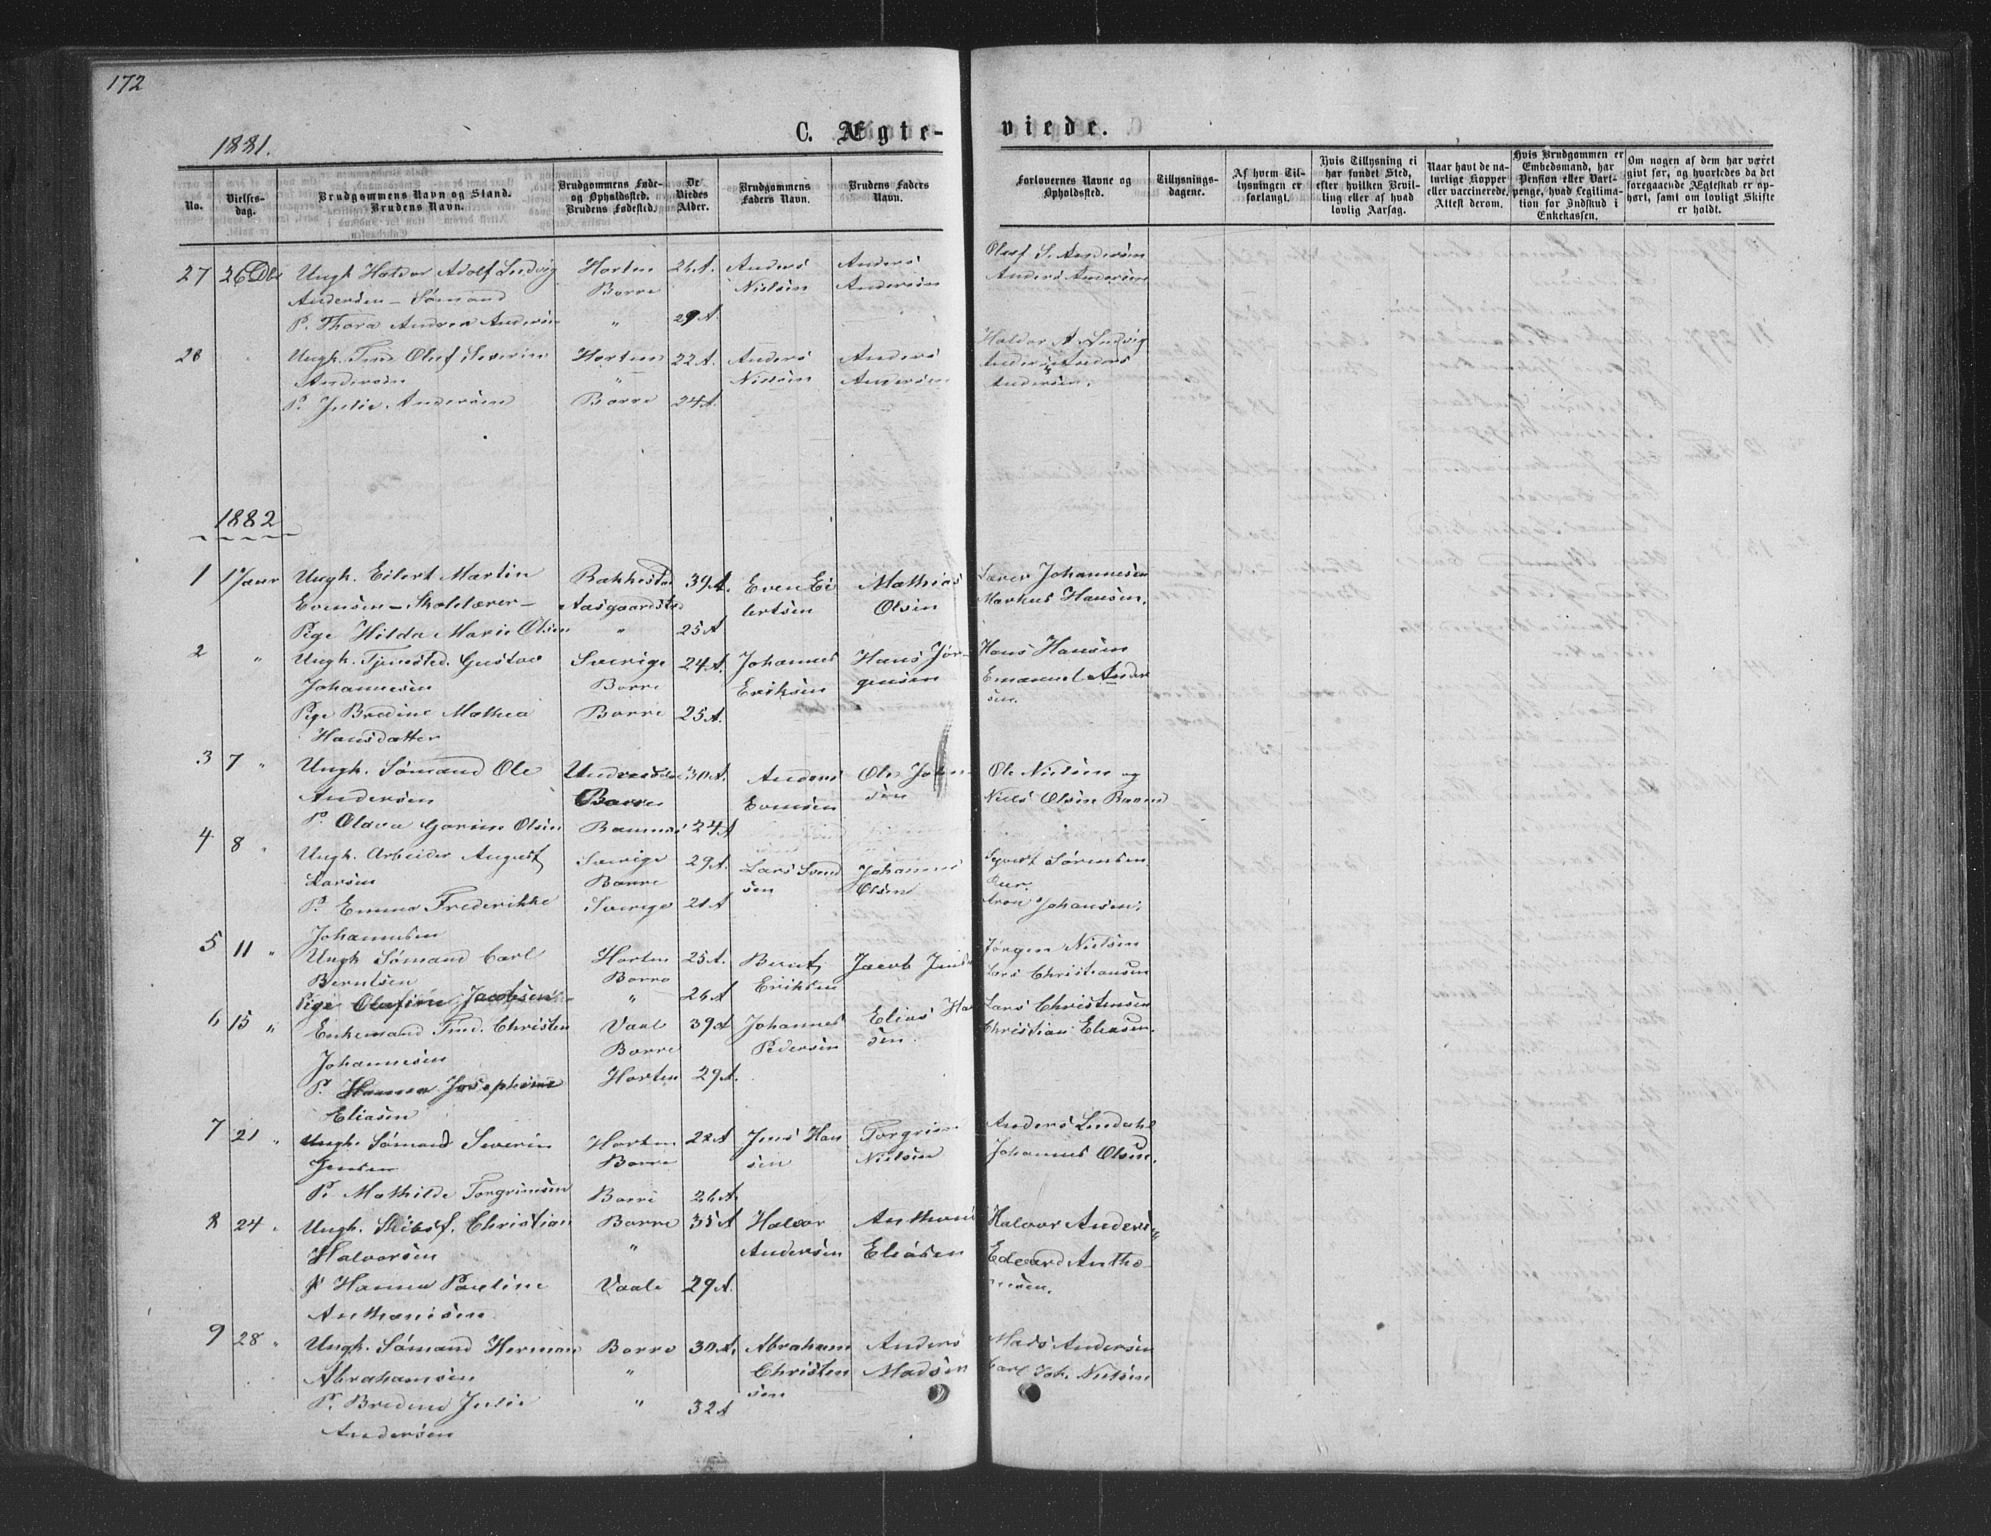 172
1881.
C. Ægte-
viede.
No.
Vielses-
dag.
Brudgommens Navn og Stand.
Brudens Navn.
Brudgommens Føde-
og Opholdssted.
Brudens Fødested.
De
Viedes
Alder.
Brudgommens
Faders Navn.
Brudens Faders
Navn.
Forlovernes Navne og
Opholdssted.
Tillysnings-
dagene.
Af hvem Til-
lysningen er
forlangt.
Hvis Tillysning ei
har fundet Sted,
efter hvilken Bevil-
ling eller af hvad
lovlig Aarsag.
Naar havt de na-
turlige Kopper
eller vaccinerede,
Attest derom.
Hvis Brudgommen er
Embedsmand, har
Pension eller Vart-
penge, hvad Legitima-
tion for Indskud i
Enkekassen.
Om nogen af dem har været
gift før, og hvorledes da det
foregaaende Ægteskab er op-
hørt, samt om lovligt Skifte
er holdt.
27 26 Dbr Ungk Haldor Adolf Ludvig Horten 26 A. Anders Anders Oluf S. Andersen
Andersen – Sømand Borre Nielsen Andersen Anders Andersen
P. Thora Andrea Andersen " 29 A.
28 Ungk. Tmd Oluf Severin Horten 22 A. Anders Anders Haldor A Ludvig
Andersen " Nielsen Andersen Anders
P. Julie Andersen Borre 24 A. Andersen.
1882
1 1 Jaur Ungk. Eilert Martin Rakkestad 39 A. Even Ei Mathias Johannesen
Evensen – Skolelærer – Aasgaardstrd lertsen Olsen Markus Hansen.
Pige Hilda Marie Olsen " 25 A
2 " Ungk. Gustav Sverige 24 A. Johannes Hans Jør- Hans Hansen
Johannesen Borre Eriksen gensen Emanuel Ander
Pige Bredine Mathea Borre 25 A. sen.
Hansdatter
3 7 " Ungk. Sømand Ole 30 A. Anders Ole Johan Ole Nielsen og
Andersen Borre Evensen sen Niels Olsen
P. Olava Olsen 24 A
4 8 " Ungk. Arbeider August Sverige 29 A. Lars Svend Johannes Syvert Sørensen
Larsen Borre sen Olsen
P. Emma Frederikke Sverige 21 A Aron Johansen.
Johannesen
5 11 " Ungk Sømand Carl Horten 25 A. Bernt Jacob Jens Jørgen Nielsen
Berntsen Borre Eriksen Lars Christiansen
Pige Olafine Jacobsen " 26 A
6 15 " Enkemand Tmd. Christen Vaal 39 A Johannes Elias Han Lars Christensen
Johannesen Borre Pedersen sen. Christian Eliasen.
P. Hanna Josephine Horten 29 A.
Eliasen
7 21 " Ungk. Sømand Severin Horten 22 A Jens Han Torgrim Anders Lindahl
Jensen Borre sen Nielsen Johannes Olsen.
P. Mathilde Torgrimsen Borre 26 A.
8 24 " Ungk. Skibsf. Christian Borre 35 A Halvor Anthoni Halvor Anders"
Halvorsen " Andersen Eliasen Edvard Antho
P Hanna Pauline Vaale 29 A. nisen.
Anthonisen
9 28 " Ungk. Sømand Herman Borre 30 A. Abraham Anders Mads Andersen
Abrahamsen " Christen Madsen Carl Joh. Nielsen
P. Bredine Julie " 32 A sen
Andersen